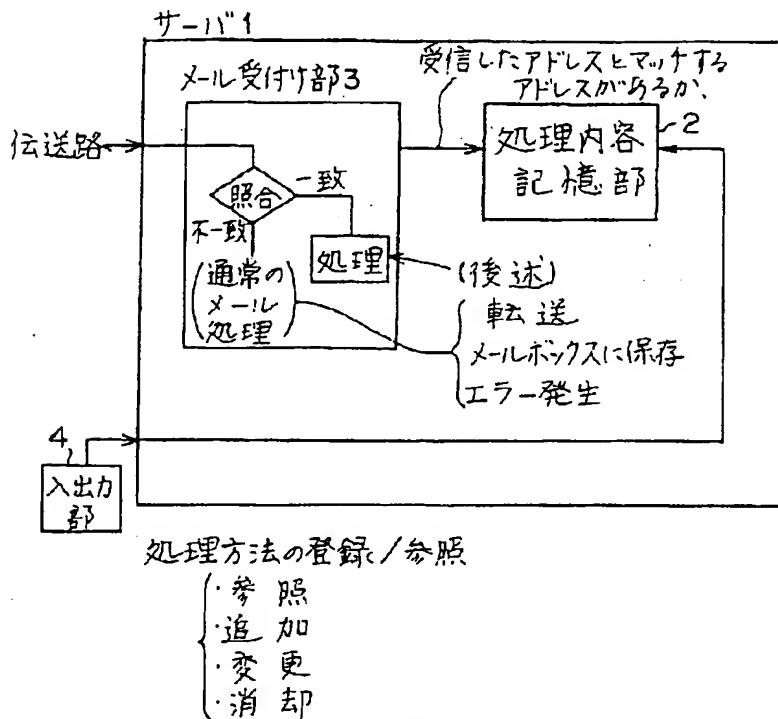 サーバ1
メール受付け部3
受信したアドレスとマッチする
アドレスがあるか、
2
処理内容
記憶部
伝送路
照合
一致
不一致
処理
通常の
メール
処理
(後述)
転送
メールボックスに保存
エラー発生
4
入出力
部
処理方法の登録/参照
・参照
・追加
・変更
・消却